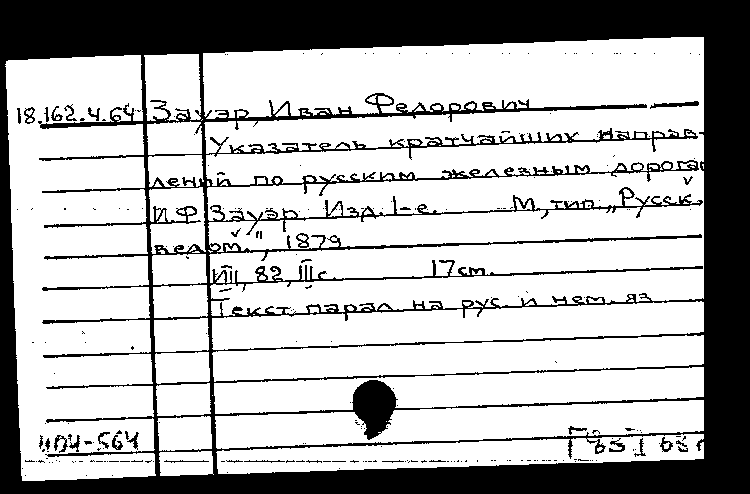 18.162.4.64 Зауэр, Иван Федорович
Указатель кратчайших направ-
лений по русским железным дорога
И.Ф. Зауэр. Изд. 1-е. М., тип. „Русск.
ведом.", 1879
VIII, 82, III с. 17 см.
Текст парал. на рус. и нем. яз